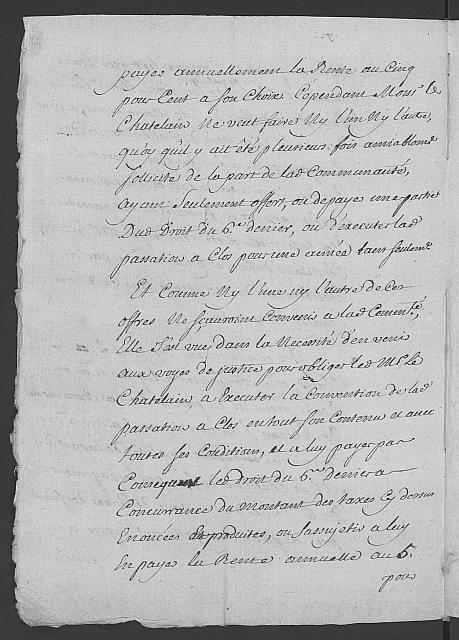 payer annuellement la Rente au Cinq
pour Cent a son Choix Cependant Monsr le
Chatelain Ne veut faire Ny l'un Ny l'autre,
quoy quil y ait été plusieurs fois amiablemt
sollicité de la part de lad Communauté,
ayant seulement offert, ou de payer une partie
Dud Droit du 6e denier, ou d'executer lad
passation a Clos pour une année tant seulemt
Et Comme Ny l'une ny l'autre de Ces
offres Ne scauroint Convenir a lad Comunté,
Elle s'est vue dans la Necessité d'en venir
aux voyes de justice pour obliger led Mr Le
Chatelain, a Executer la Convention de lad
passation a Clos en tout son Contenu et avec
toutes ses Conditions, et a luy payer par
Consequent led droit du 6e denier a
Concurrance du Montant des taxes Cy dessus
Enoncées produites, ou s'assujetir a luy
En payer la Rente annuelle au 5.
pour